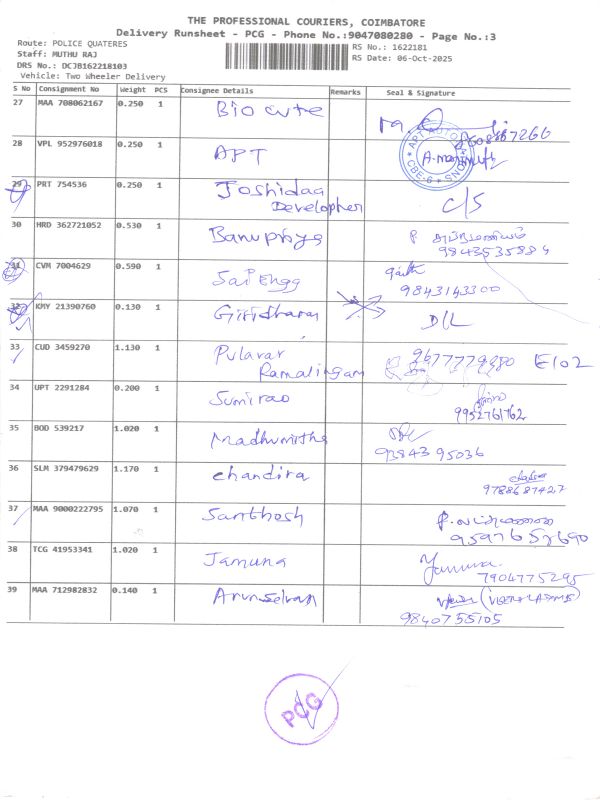 THE PROFESSIONAL COURIERS, COIMBATORE
Delivery Runsheet - PCG - Phone No.:9047080280 - Page No.:3
Route: POLICE QUATERES
RS No.: 1622181
Staff: MUTHU RAJ
RS Date: 06-Oct-2025
DRS No.: DCJB162218103
Vehicle: Two Wheeler Delivery
S No Consignment No Weight PCS Consignee Details Remarks Seal & Signature
27 MAA 708062167 0.250 1 Bio cute
28 VPL 952976018 0.250 1 APT
APT AUTO
CBE-6
29 PRT 754536 0.250 1 Joshidaa C/S
Developher
30 HRD 362721052 0.530 1 Banupriya
31 CVM 7004629 0.590 1 Sai Engg
9843143300
32 KMY 21390760 0.130 1 Giridharan D/L
33 CUD 3459270 1.130 1 Pulavar E102
Ramalingam
34 UPT 2291284 0.200 1 Sumirao
9952761762
35 BOD 539217 1.020 1 Madhumitha
93843 95036
36 SLM 379479629 1.170 1 chandira
9788687427
37 MAA 9000222795 1.070 1 Santhosh
38 TCG 41953341 1.020 1 Jamuna Jamuna
7904775295
39 MAA 712982832 0.140 1 Arunselvan
9840755105
PCG